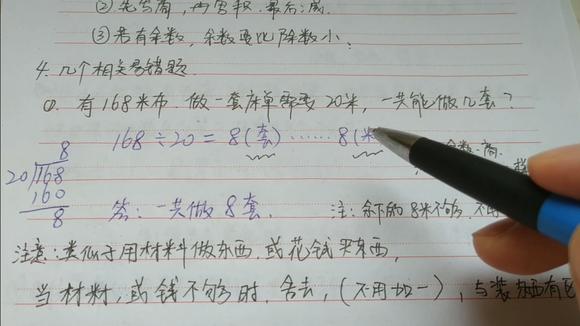 ②先写商，再写积，最后减
③若有余数，余数要比除数小。
4. 几个相关易错题
①. 有168米布，做一套床单需要20米，一共能做几套？
168÷20=8(套)……8(米
余数 商
8
20 168
160
8
答：一共做8套.
注：余下的8米不够，不用
注意：类似于用材料做东西，或花钱买东西，
当材料，或钱不够时，舍去，(不用加一)，与装东西有